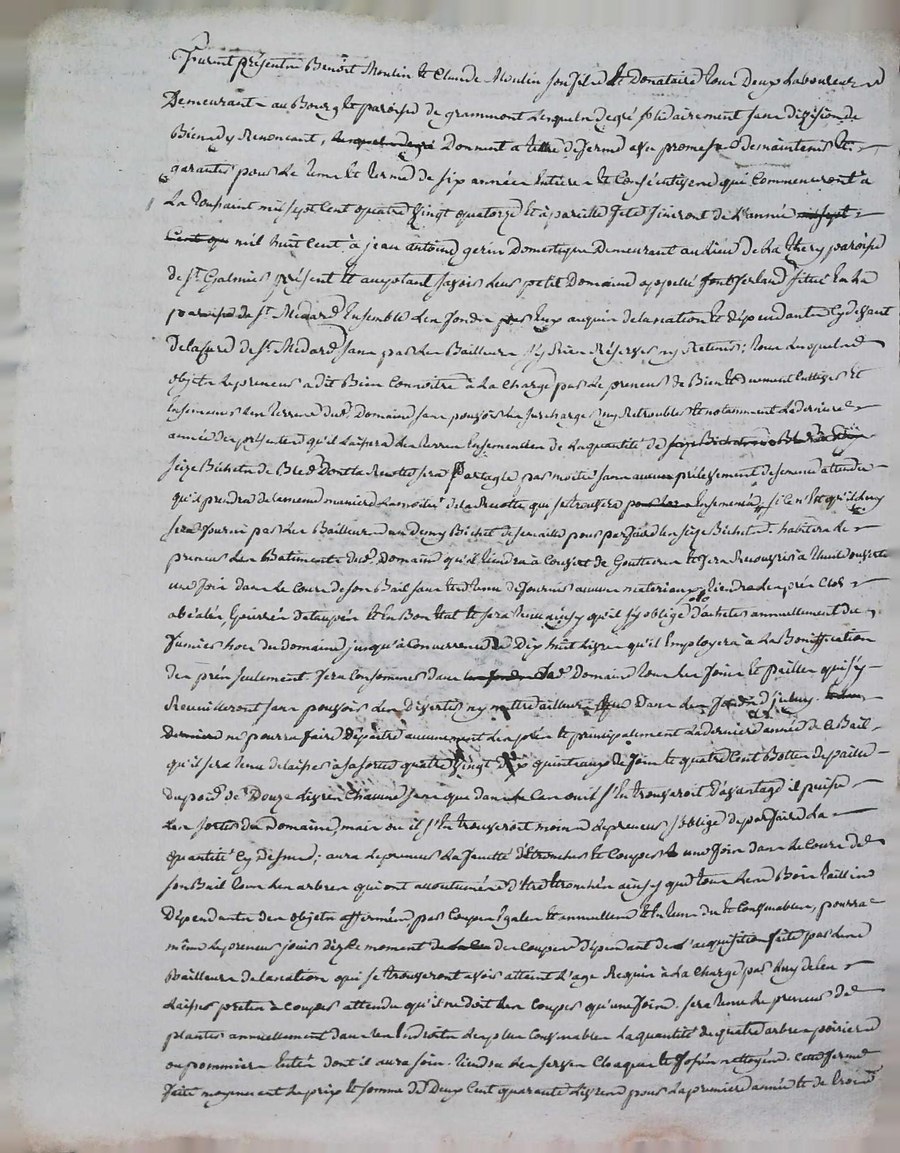 Furent présentes Benoist Moulin et Claude Moulin son fils et Donataire tous Deux Laboureurs
Demeurant au Bourg et paroisse de grammont Lesquels de gré solidairement sans division de
Biens dy Renoncant, Donnent a titre de ferme avec promesse de maintenir et
garantir pour Le tems et terme de six années Entieres et Consécutives qui Commenceront a
La Toussaint mil sept Cent quatre Vingt quatorze et à pareille fete finiront de L'année mil sept
Cent mil huit Cent à jean antoine gerin Domestique Demeurant au Lieu de La thery paroisse
de St Galmier présent et acceptant savoir Leur petit Domaine appellé fontferland situé En La
paroisse de St Medard Ensemble Les fonds par Eux acquis de La nation et dépendants Cy devant
De La Cure de St Medard sans par Les Bailleurs s'y Rien Réserver ny Retenir; tous Lesquels
objets Le preneur a dit Bien Connoître à La Charge par Le preneur de Bien et duement Cultiver Et
Ensemencer Les terres dud. Domaine sans pouvoir Les surcharger ny Retroubler et notamment La derniere
année des présentes qu'il Laissera Les terres Ensemencées de La quantité de
seize Bichets de Bled Dont La Recolte sera Partagée par moitié sans aucun prélevement de semence attendu
qu'il prendra de La meme maniere La moitié de La Recolte qui se trouvera Ensemencée, si Ce n'Est qu'il Luy
sera fourni par Les Bailleurs un Demy Bichet de semaille pour parfaire Les seize Bichets. habitera Le
preneur Les Batiments dud. Domaine qu'il tiendra à Couvert de Goutieres Et fera Recouvrir à tuile
une fois dans Le Cours de son Bail sans Etre tenu de fournir aucuns materiaux, tiendra Les prés Clos
Epierrés Etaupés Et En Bon Etat Et sera tenu ainsy qu'il s'y oblige d'acheter annuellement du
Fumier hors du domaine jusqu'à Concurrence de Dix huit Livres qu'il Employera à La Bonification
des prés seulement fera Consommer dans Led. Domaine tous Les foins Et pailles qui s'y
Recueilleront sans pouvoir Les divertir ny mettre ailleurs que Dans Les fonds d'iceluy.
ne pourra faire dépaître aucunement Les prés Et principalement La derniere année de Ce Bail
qu'il sera tenu de Laisser à sa sortie quatre Vingt Dix quintaux de foin Et quatre Cent Bottes de paille
du poid de Douze Livres Chacune sans que dans Le Cas ou il s'En trouveroit davantage il puisse
Les sortir du Domaine, mais ou il s'En trouveroit moins Le preneur s'oblige de parfaire La
quantité Cy dessus; aura Le preneur La faculté d'Etroncher Et Couper une fois dans Le Cours de
son Bail tous Les arbres qui ont accoutumé d'Etre Etronchés ainsy que tous Les Bois taillis
Dépendants des objets affermés, par Coupes Egales Et annuelles Et En tems du Et Convenables, pourra
même Le preneur jouir dez Ce moment des Coupes dépendant de L'acquisition faite par Les
Bailleurs de La nation qui se trouveront avoir atteint L'age Requis à La Charge par Luy de Les
Laisser pretes à Couper attendu qu'il ne doit Les Couper qu'une fois. sera tenu Le preneur de
planter annuellement dans Les Endroits Les plus Convenables La quantité de quatre arbres poiriers
ou pommiers Entés dont il aura soin. tiendra Les serves Cloaques Et fossés nettoyés. cette ferme
faite moyennant Le prix Et somme de Deux Cent quarante Livres pour La premiere année Et de trois